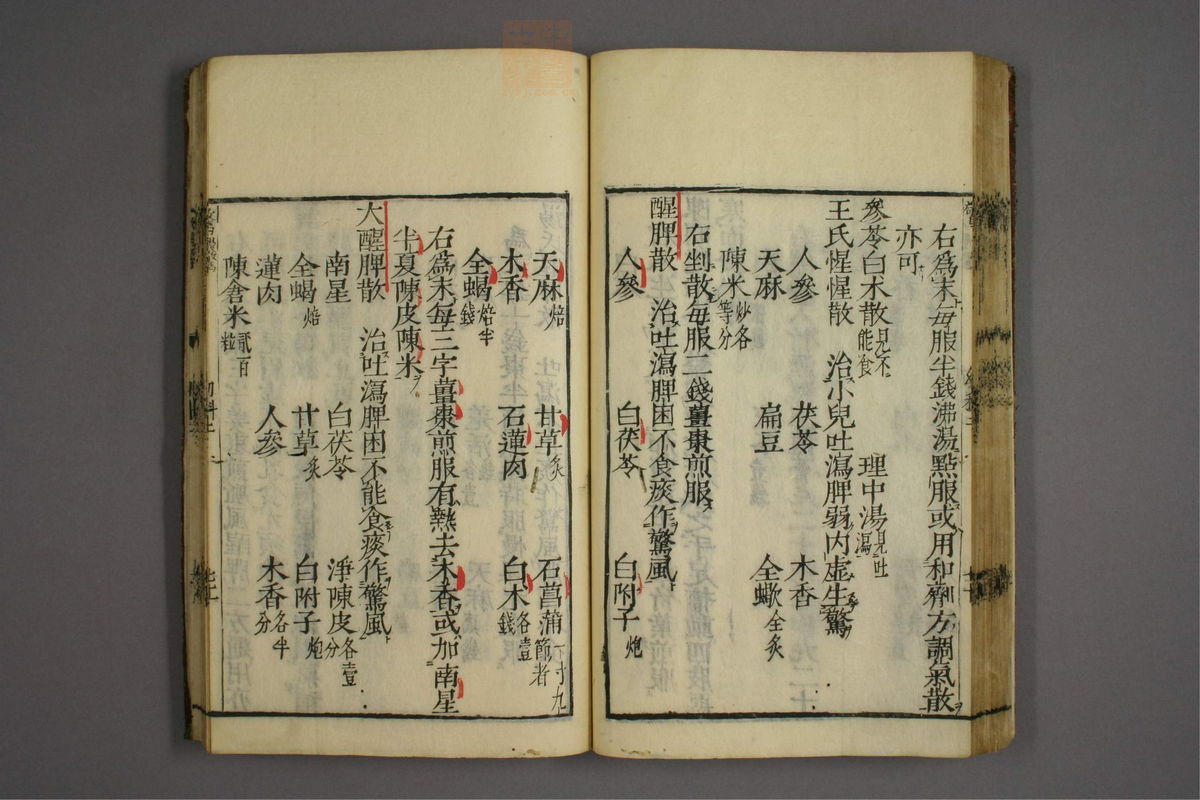 右爲末毎服半錢沸湯點服或用和劑方調氣散
亦可
參苓白朮散見不能食 理中湯見吐瀉
王氏惺惺散 治小兒吐瀉脾弱内虚生驚
人參 茯苓 木香
天麻 扁豆 全蝎全炙
陳米炒各等分
右剉散毎服二錢薑棗煎服
醒脾散 治吐瀉脾困不食痰作驚風
人參 白茯苓 白附子炮
天麻焙 甘草炙 石菖蒲一寸九節者
木香 石蓮肉 白朮各壹錢
全蝎焙半錢
右爲末毎三字薑棗煎服有熱去木香或加南星
半夏陳皮陳米
大醒脾散 治吐瀉脾困不能食痰作驚風
南星 白茯苓 淨陳皮各壹分
全蝎焙 甘草炙 白附子炮
蓮肉 人參 木香各半分
陳倉米貳百粒